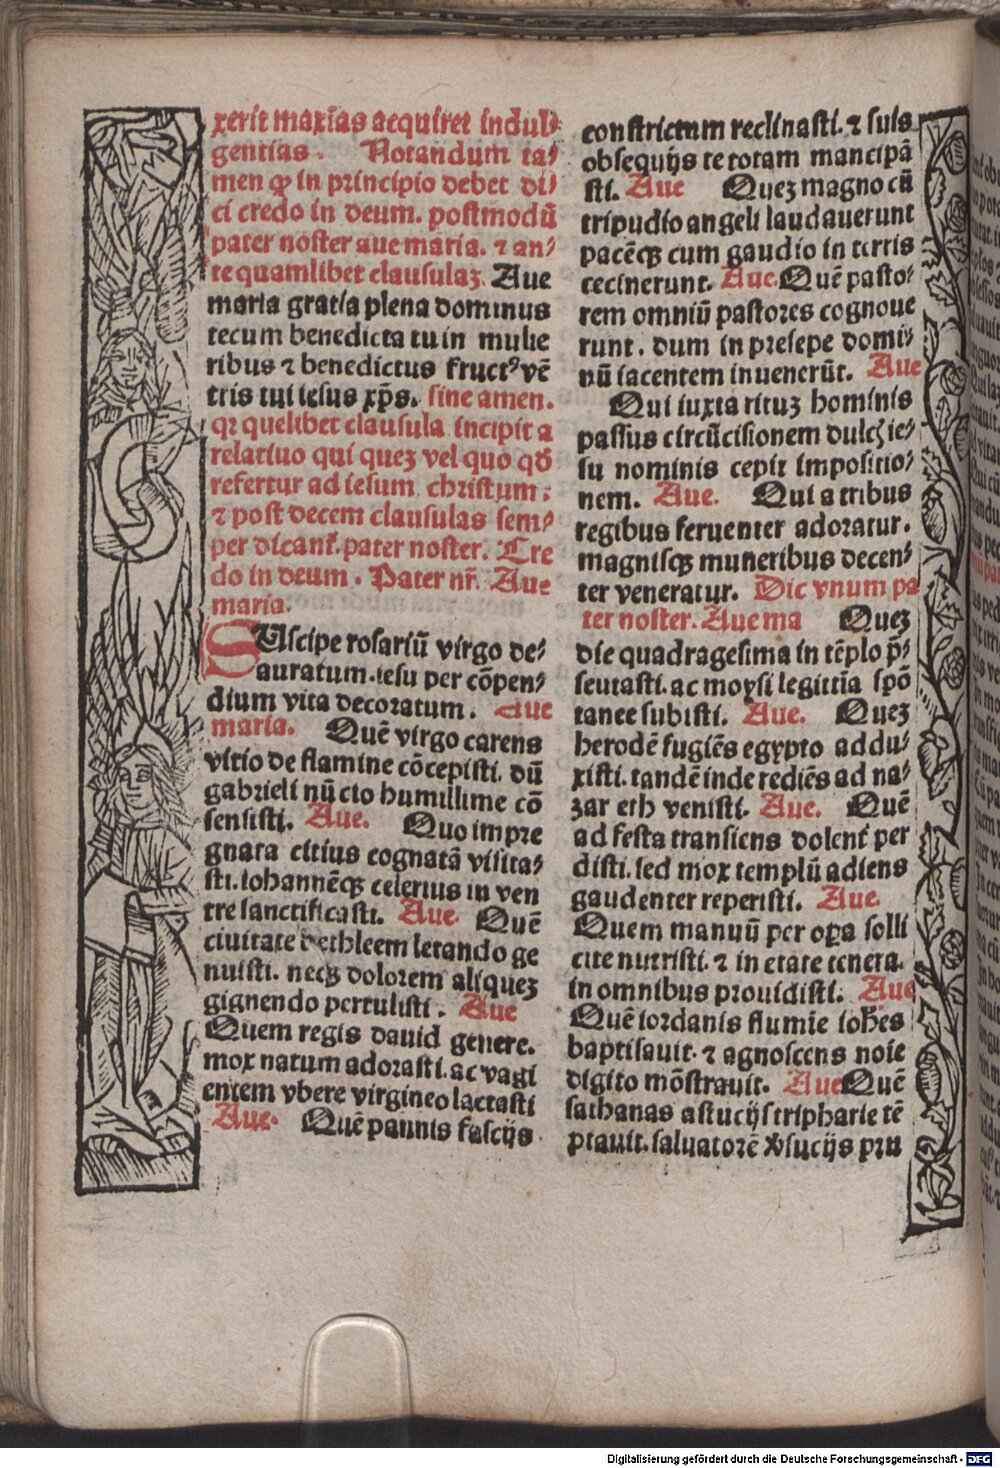 xerit maxīas acquiret indul⸗
gentias. Notandum ta⸗
men ꝙ in principio debet di⸗
ci credo in deum. postmodū
pater noster aue maria. ⁊ an⸗
te quamlibet clausulaꝫ. Aue
maria gratia plena dominus
tecum benedicta tu in mulie
ribus ⁊ benedictus fructꝰ vē
tris tui iesus xp̄s. sine amen.
qꝛ quelibet clausula incipit a
relatiuo qui queꝫ vel quo qđ
refertur ad iesum christum:
⁊ post decem clausulas sem⸗
per dicant̄. pater noster. Cre
do in deum. Pater nr̄. Aue
maria.
SUscipe rosariū virgo de⸗
auratum. iesu per cōpen⸗
dium vita decoratum. Aue
maria. Quē virgo carens
vitio de flamine cōcepisti. dū
gabrieli nūcio humillime cō
sensisti. Aue. Quo impre
gnata citius cognatā visita⸗
sti. iohannēqꝫ celerius in ven
tre sanctificasti. Aue. Quē
ciuitate bethleem letando ge
nuisti. necqꝫ dolorem aliqueꝫ
gignendo pertulisti. Aue
Quem regis dauid genere.
mox natum adorasti. ac vagi
entem vbere virgineo lactasti
Aue. Quē pannis fascijs
constrictum reclinasti. ⁊ suis
obsequijs te totam mancipā
sti. Aue Queꝫ magno cū
tripudio angeli laudauerunt
pacēqꝫ cum gaudio in terris
cecinerunt. Aue. Quē pasto⸗
rem omniū pastores cognoue
runt. dum in presepe domi⸗
nū iacentem inuenerūt. Aue
Qui iuxta rituꝫ hominis
passus circūcisionem dulcꝫ ie⸗
su nominis cepit impositio⸗
nem. Aue. Qui a tribus
regibus feruenter adoratur.
magnisqꝫ muneribus decen⸗
ter veneratur. Dic vnum pa
ter noster. Aue ma Queꝫ
die quadragesima in tēplo p̄⸗
sentasti. ac moysi legittīa spō
tanee subisti. Aue. Queꝫ
herodē fugiēs egypto addu⸗
xisti. tandē inde rediēs ad na⸗
zareth venisti. Aue. Quē
ad festa transiens dolent̄ per
didisti. sed mox templū adiens
gaudenter reperisti. Aue.
Quem manuū per oꝑa solli
cite nutristi. ⁊ in etate tenera.
in omnibus prouidisti. Aue
Quē iordanis flumīe ioħes
baptisauit. ⁊ agnoscens noīe
digito mōstrauit. Aue Quē
sathanas astucijs tripharie tē
ptauit. saluatorē
Digitalisierung gefördert durch die Deutsche Forschungsgemeinschaft - DFG